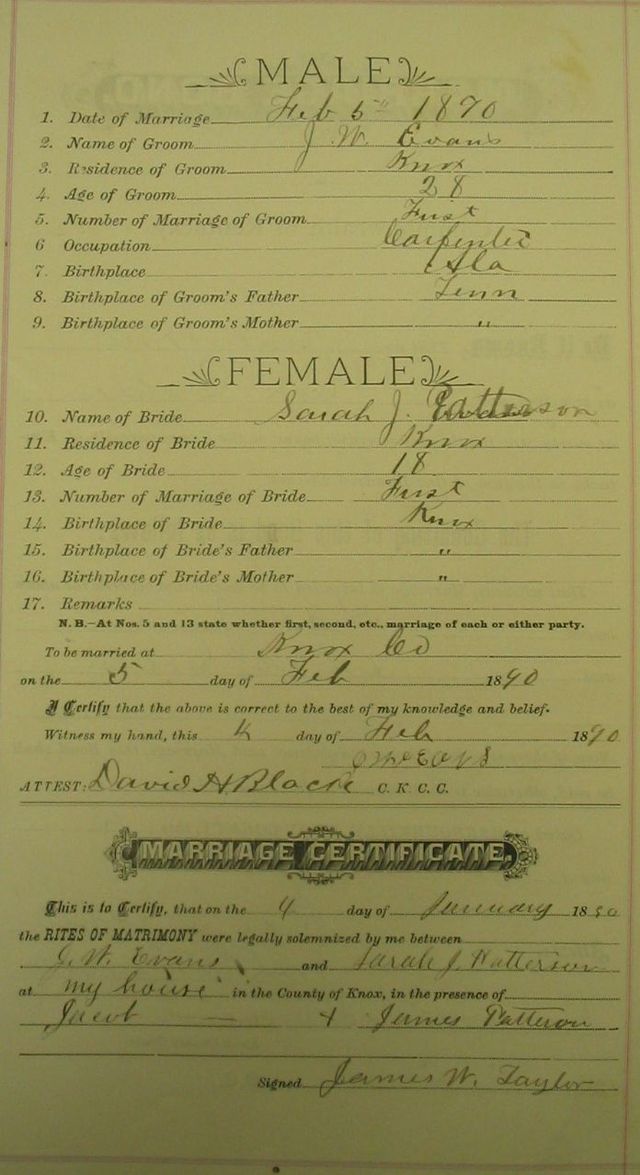 MALE
1. Date of Marriage Feb 5th 1890
2. Name of Groom J. W. Evans
3. Residence of Groom Knox
4. Age of Groom 28
5. Number of Marriage of Groom First
6 Occupation Carpenter
7. Birthplace Ala
8. Birthplace of Groom's Father Tenn
9. Birthplace of Groom's Mother "
FEMALE
10. Name of Bride Sarah J. Patterson
11. Residence of Bride Knox
12. Age of Bride 18
13. Number of Marriage of Bride First
14. Birthplace of Bride Knox
15. Birthplace of Bride's Father "
16. Birthplace of Bride's Mother "
17. Remarks
N. B.—At Nos. 5 and 13 state whether first, second, etc., marriage of each or either party.
To be married at Knox Co
on the 5 day of Feb 1890
I Certify that the above is correct to the best of my knowledge and belief.
Witness my hand, this 4 day of Feb 1890
ATTEST: David H Black C. K. C. C.
MARRIAGE CERTIFICATE.
This is to Certify, that on the 4 day of January 1890
the RITES OF MATRIMONY were legally solemnized by me between
J. W. Evans and Sarah J. Patterson
at my house in the County of Knox, in the presence of
Jacob — + James Patterson
Signed James W. Taylor